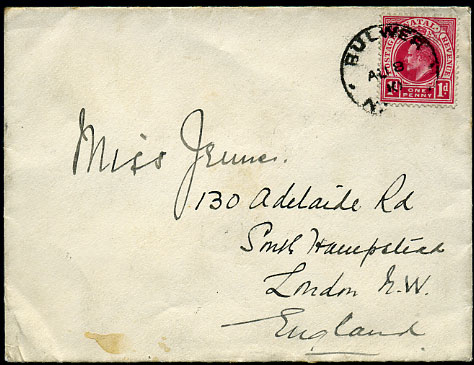 NATAL
POSTAGE REVENUE
1d ONE PENNY 1d
BULWER
AU 8
10
Miss Jenner.
130 Adelaide Rd
South Hampstead
London N.W.
England